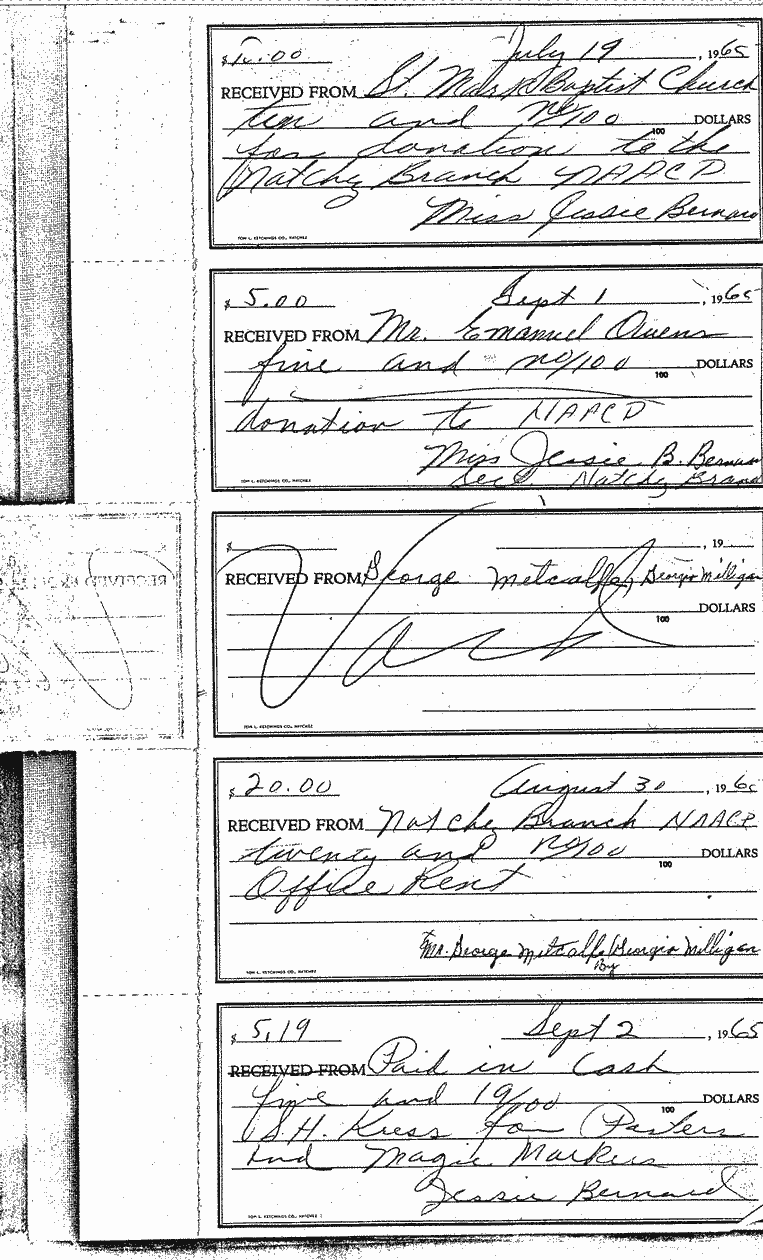 $10.00 July 19, 1965
RECEIVED FROM St. Mark Baptist Church
ten and no/100 100 DOLLARS
for donation to the
Natchez Branch NAACP
Miss Jessie Bernard
TOM L. KETCHINGS CO., NATCHEZ
$5.00 Sept 1, 1965
RECEIVED FROM Mr. Emanuel Owens
five and no/100 100 DOLLARS
donation to NAACP
Miss Jessie B. Bernard
Sec Natchez Branch
TOM L. KETCHINGS CO., NATCHEZ
$ , 19
RECEIVED FROM George Metcalfe, Georgia Milligan
100 DOLLARS
Void
TOM L. KETCHINGS CO., NATCHEZ
RECEIVED FROM
$20.00 August 30, 1965
RECEIVED FROM Natchez Branch NAACP
twenty and no/100 100 DOLLARS
Office Rent
Mr. George Metcalfe/Georgia Milligan
By
TOM L. KETCHINGS CO., NATCHEZ
$5.19 Sept 2, 1965
RECEIVED FROM Paid in Cash
five and 19/100 100 DOLLARS
S.H. Kress for Posters
and Magic Markers
Jessie Bernard
TOM L. KETCHINGS CO., NATCHEZ